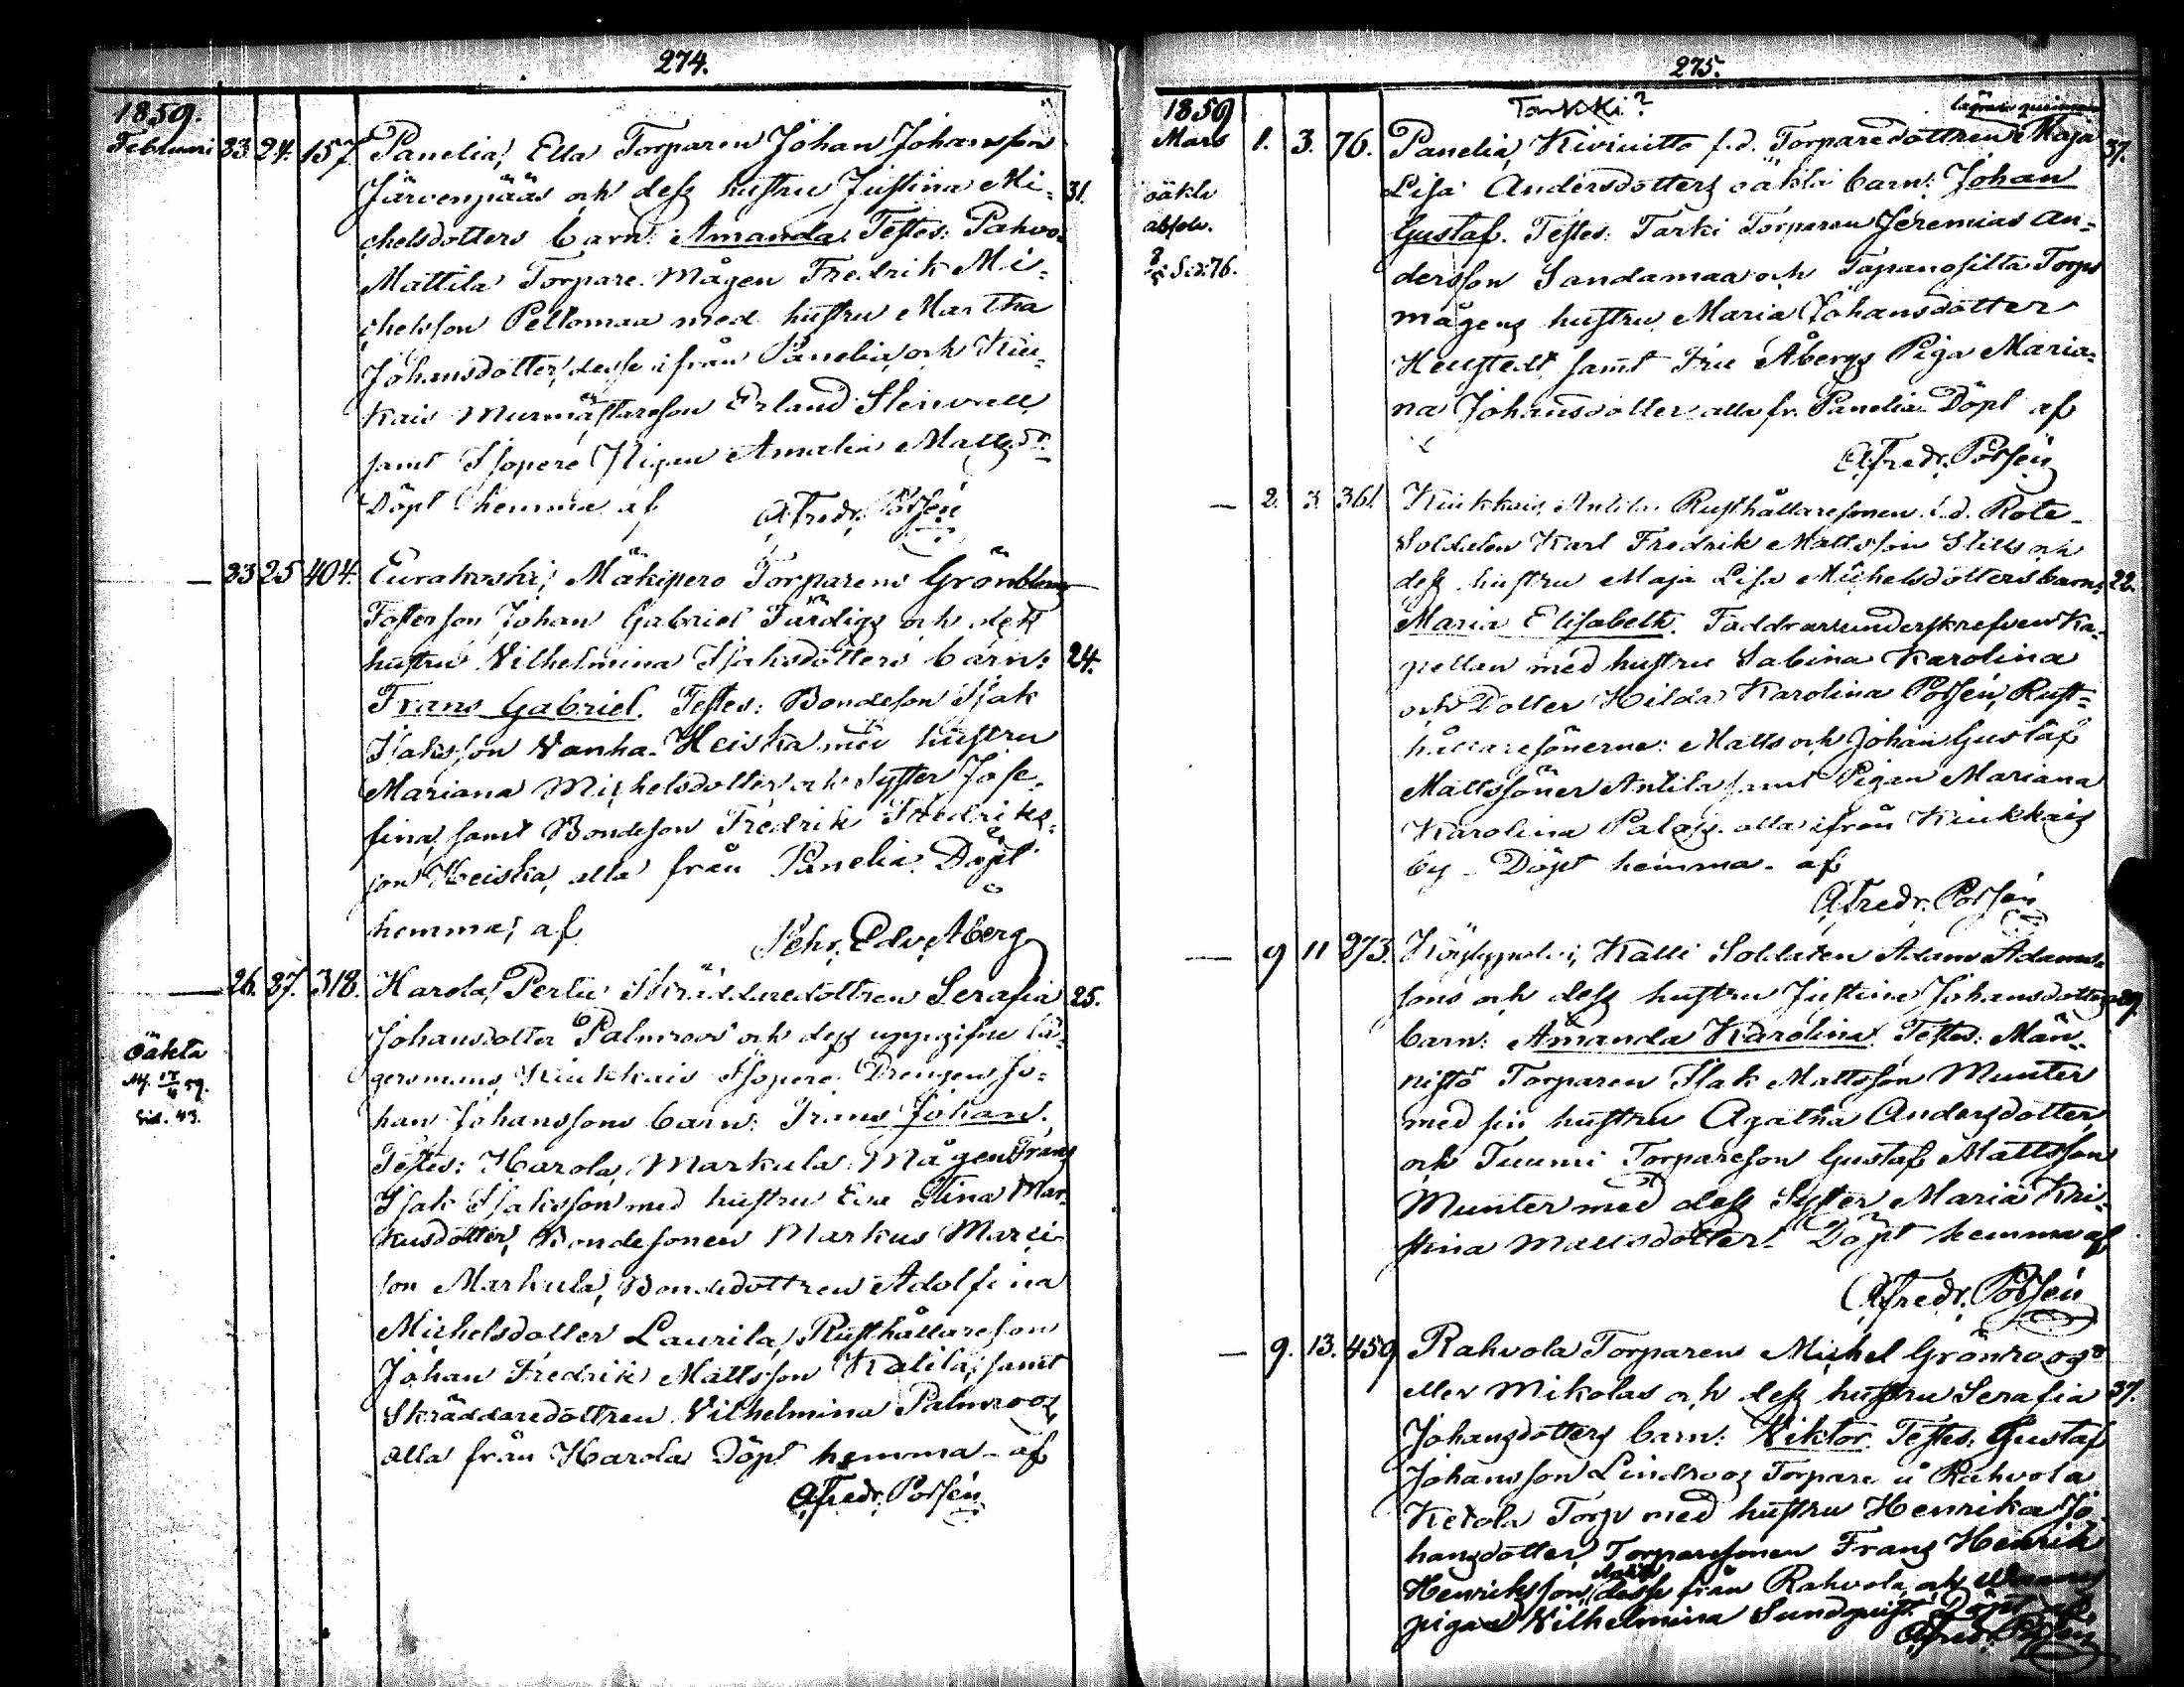 274.
1859.
Februari 23. 24. 157. Panelia, Ella Torparen Johan Johansson
Järvenpääs och dess hustru Justina Mi- 31.
chelsdotters barn: Amanda. Testes: Pahvo-
Mattila Torpare Mågen Fredrik Mi-
chelsson Peltomaa med hustru Martha
Johansdotter, desse ifrån Panelia, och Kiu-
kais Murmästareson Erland Stenvall
samt Isopere Pigan Amalia Mattsdr.
Döpt hemma af
A. Fredr. Polsén
— 23 25 404. Eurakoski, Mäkipero Torparens Grönbloms
Fosterson Johan Gabriel Färdigs och dess
hustru Vilhelmina Isaksdotters barn: 24.
Frans Gabriel. Testes: Bondeson Isak
Isaksson Vanha-Heiska med hustru
Mariana Michelsdotter och Syster Jose-
fina, samt Bondeson Fredrik Fredriks-
son Heiska, alla från Panelia. Döpt
hemma, af
Pehr Edv. Åberg
— 26. 27. 318. Harola, Perttu Skräddaredottren Serafia 25.
Johansdotter Palmroos och dess uppgifne lä-
oäkta
germans, Kiukkais Isopere Drengen Jo-
sid. 43.
han Johanssons barn: Frans Johan.
Testes: Harola, Markula Mågen Frans
Isak Isaksson med hustru Eva Stina Mar-
kusdotter, Bondesonen Markus Marci-
son Markula, Bondedottren Adolfina
Michelsdotter Laurila, Rusthållareson
Johan Fredrik Mattsson Katila, samt
Skräddaredottren Vilhelmina Palmroos,
alla från Harola. Döpt hemma af
A. Fredr. Polsén
275.
1859 Tarkki?
Mars 1. 3. 76. Panelia, Kiviniitto f.d. Torparedottren Maja 37.
Lisa Andersdotters oäkta barn: Johan
oäkta
absolv.
Gustaf. Testes: Tarki Torparen Jeremias An-
Sid. 76.
dersson Sandamaa och Tapanosilta Torp
mågens hustru Maria Johansdotter
samt Fru Åbergs Piga Maria-
na Johansdotter alla fr. Panelia. Döpt af
A. Fredr. Polsén
— 2. 3. 361. Kiukkais, Antila Rusthållaresonen f.d. Rote-
Soldaten Karl Fredrik Mattsson och
dess hustru Maja Lisa Michelsdotters barn: 22.
Maria Elisabeth. Faddrar: underskrefven Ka-
pellan med hustru Sabina Karolina
och Dotter Hilda Karolina Polsén, Rust-
hållaresönerne: Matts och Johan Gustaf
Mattssöner Antila samt Pigan Mariana
Karolina alla ifrån Kiukkais
by. Döpt hemma af
A. Fredr. Polsén
— 9 11 273. Köyliypolvi, Kalli Soldaten Adam Adams-
sons och dess hustru Justina Johansdotters 29.
barn: Amanda Karolina. Testes: Män-
nistö Torparen Isak Mattsson Munter
med sin hustru Agatha Andersdotter,
och Tuumi Torpareson Gustaf Mattsson
Munter med dess Syster Maria Kri-
stina Mattsdotter. Döpt hemma af
A. Fredr. Polsén
— 9. 13. 459 Rahvola Torparen Michel Grönroos
eller Mikolas och dess hustru Serafia 37.
Johansdotters barn: Viktor. Testes: Gustaf
Johansson Lindroos Torpare å Rahvola
Ketola Torp med hustru Henrika Jo-
hansdotter, Torparesonen Frans Henrik
Henriksson, desse från Rahvola och
pigan Vilhelmina Sundqvist. Döpt af
A. Fredr. Polsén